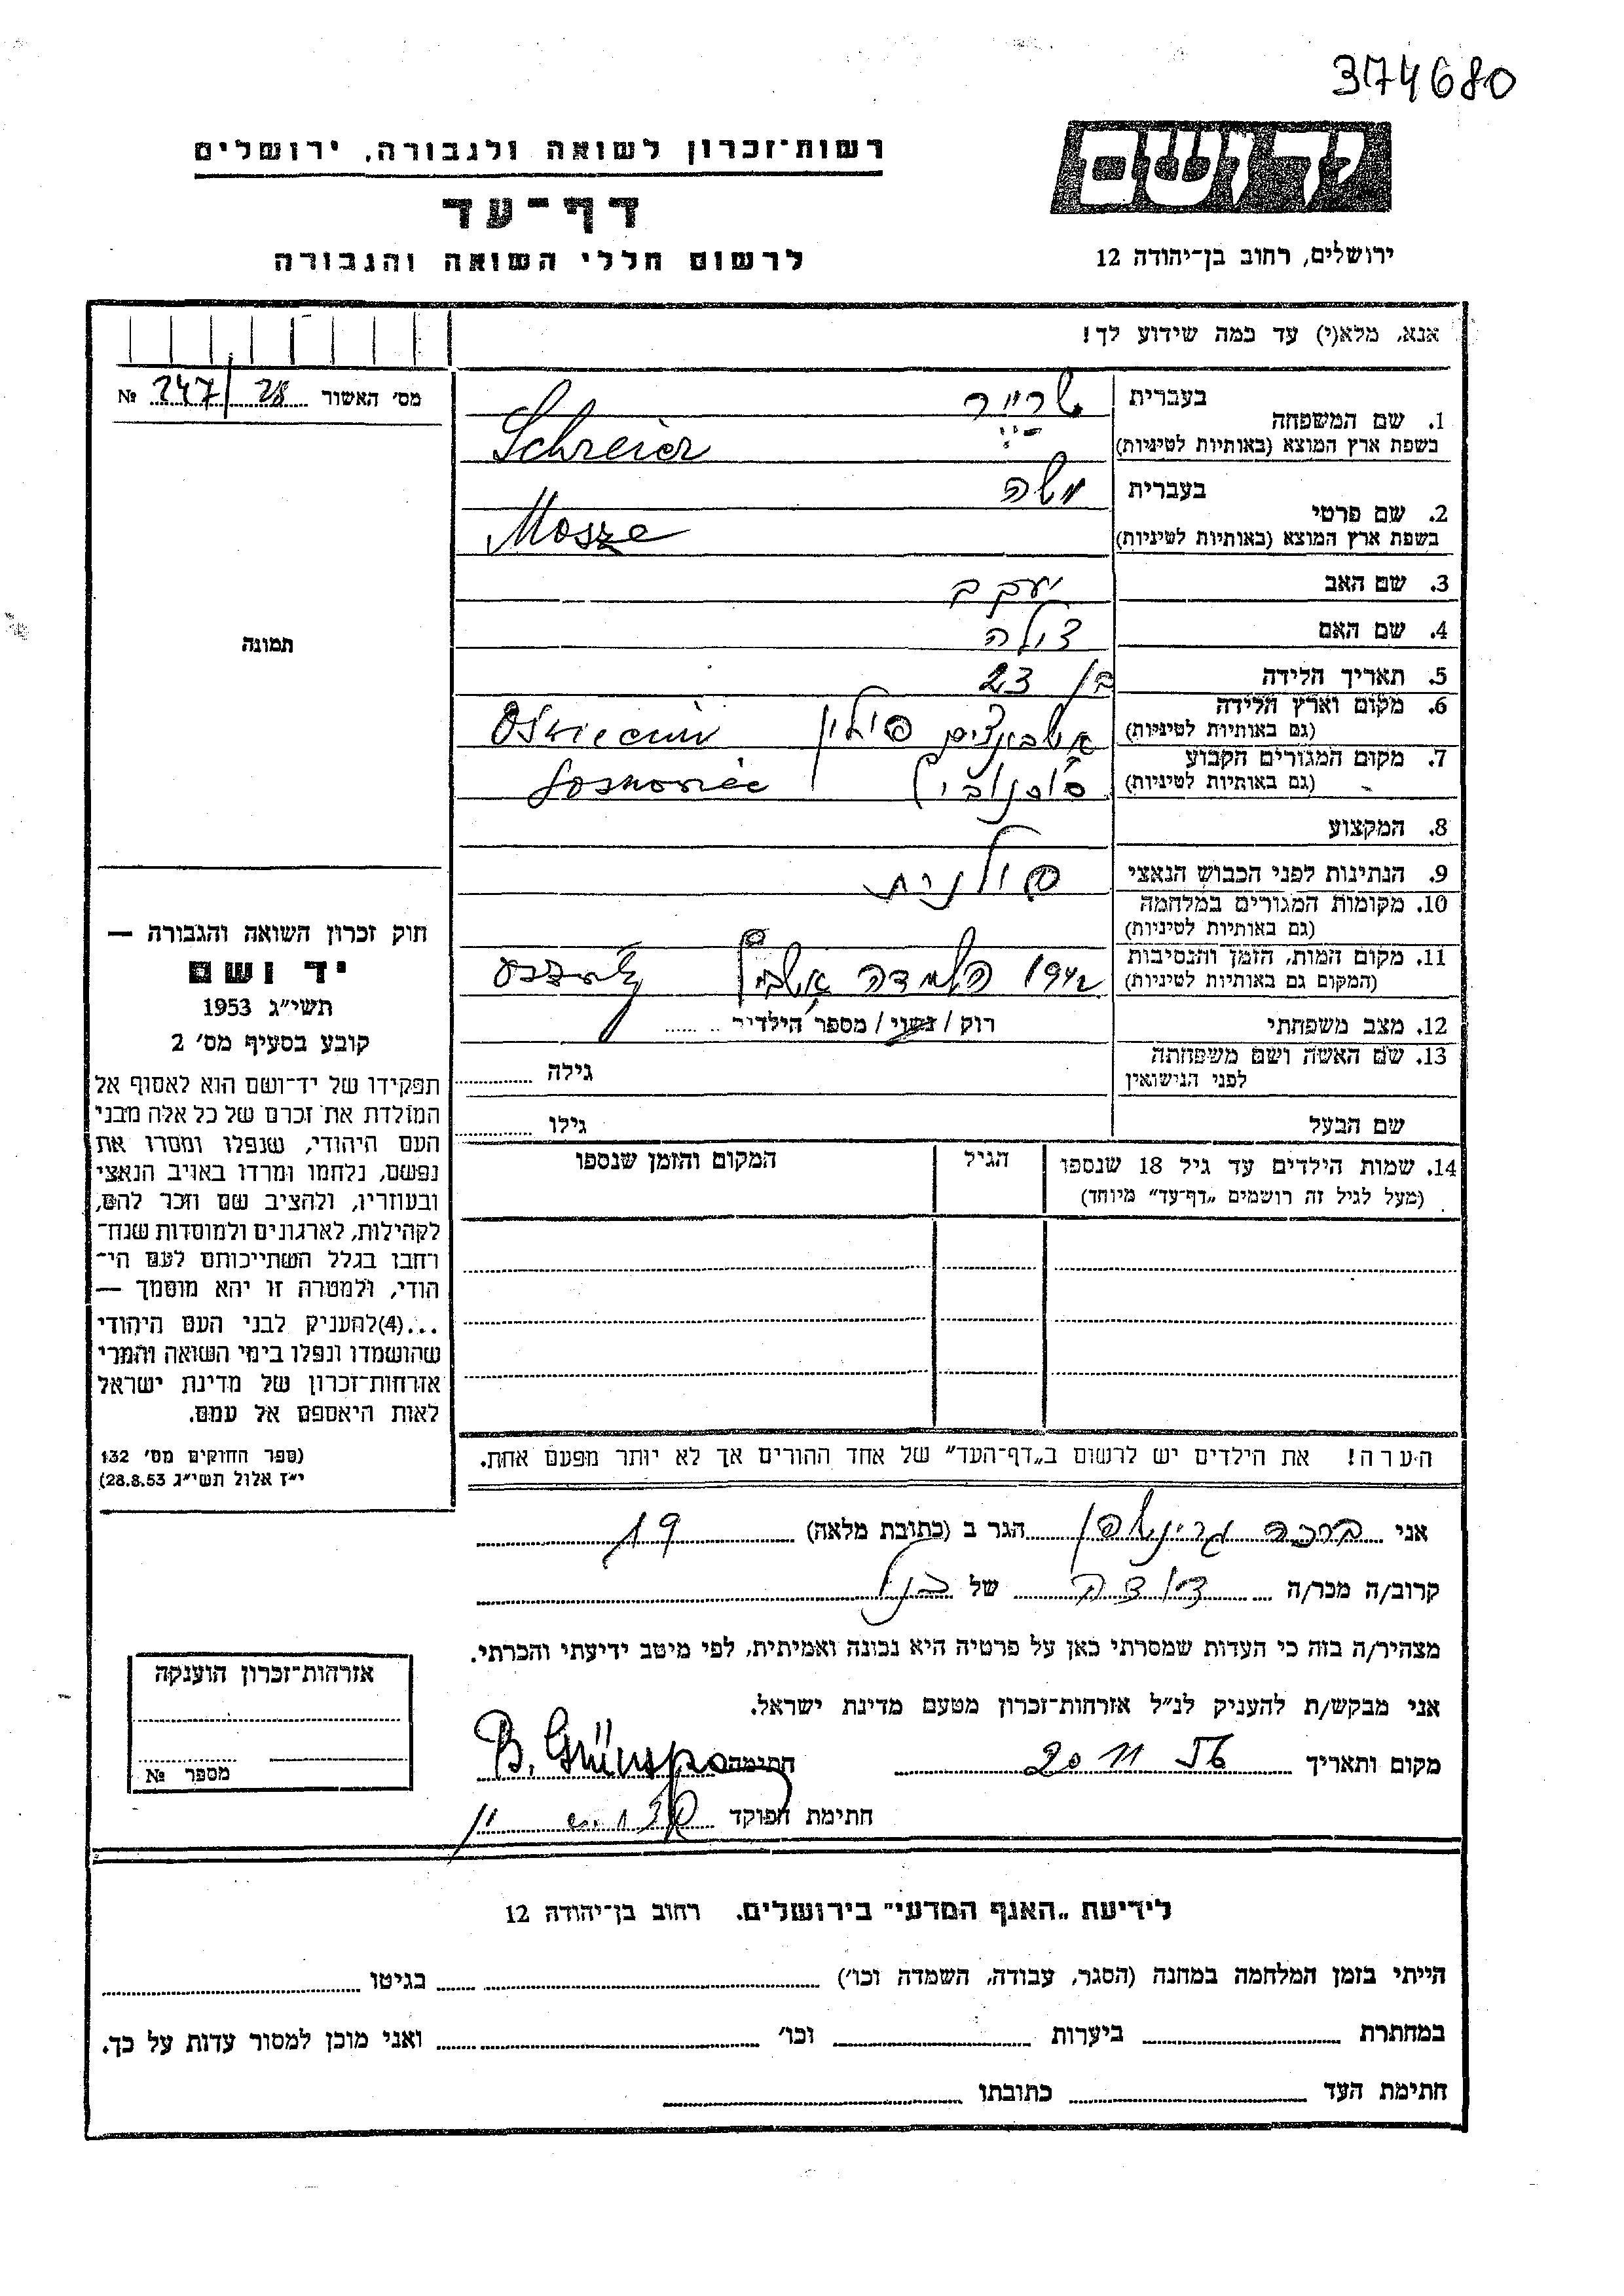 374680
יד ושם
ירושלים, רחוב בן־יהודה 12
רשות־זכרון לשואה ולגבורה, ירושלים
דף־עד
לרשום חללי השואה והגבורה
אנא, מלא(י) עד כמה שידוע לך!
מס׳ האשור 28/247 №
1. שם המשפחה
בעברית שרייר
בשפת ארץ המוצא (באותיות לטיניות) Schreier
2. שם פרטי
בעברית משה
בשפת ארץ המוצא (באותיות לטיניות) Mosze
3. שם האב יעקב
4. שם האם
5. תאריך הלידה בן 23
6. מקום וארץ הלידה
(גם באותיות לטיניות) פולין
7. מקום המגורים הקבוע
(גם באותיות לטיניות) סוסנוביץ
8. המקצוע
9. הנתינות לפני הכבוש הנאצי פולנית
10. מקומות המגורים במלחמה
(גם באותיות לטיניות)
11. מקום המות, הזמן והנסיבות
(המקום גם באותיות לטיניות) 1942 השמדה
12. מצב משפחתי רוק / נשוי / מספר הילדים
13. שם האשה ושם משפחתה
לפני הנישואין גילה
שם הבעל גילו
14. שמות הילדים עד גיל 18 שנספו
(מעל לגיל זה רושמים „דף־עד״ מיוחד)
הגיל
המקום והזמן שנספו
הערה! את הילדים יש לרשום ב„דף־העד״ של אחד ההורים אך לא יותר מפעם אחת.
תמונה
חוק זכרון השואה והגבורה —
יד ושם
תשי״ג 1953
קובע בסעיף מס׳ 2
תפקידו של יד־ושם הוא לאסוף אל
המולדת את זכרם של כל אלה מבני
העם היהודי, שנפלו ומסרו את
נפשם, נלחמו ומרדו באויב הנאצי
ובעוזריו, ולהציב שם וזכר להם,
לקהילות, לארגונים ולמוסדות שנח־
רחבו בגלל השתייכותם לעם הי־
הודי, ולמטרה זו יהא מוסמך —
...(4)להעניק לבני העם היהודי
שהושמדו ונפלו בימי השואה והמרי
אזרחות־זכרון של מדינת ישראל
לאות היאספם אל עמם.
(ספר החוקים מס׳ 132
י״ז אלול תשי״ג 28.8.53)
אני ברכה גרינשפן הגר ב (כתובת מלאה)
קרוב/ה מכר/ה דודה של הנ״ל
מצהיר/ה בזה כי העדות שמסרתי כאן על פרטיה היא נכונה ואמיתית, לפי מיטב ידיעתי והכרתי.
אני מבקש/ת להעניק לנ״ל אזרחות־זכרון מטעם מדינת ישראל.
מקום ותאריך 20 11 56 חתימה B. Grünspan
חתימת הפוקד
אזרחות־זכרון הוענקה
מספר №
לידיעת „האגף המדעי״ בירושלים. רחוב בן־יהודה 12
הייתי בזמן המלחמה במחנה (הסגר, עבודה, השמדה וכו׳) בגיטו
במחתרת ביערות וכו׳ ואני מוכן למסור עדות על כך.
חתימת העד כתובתו